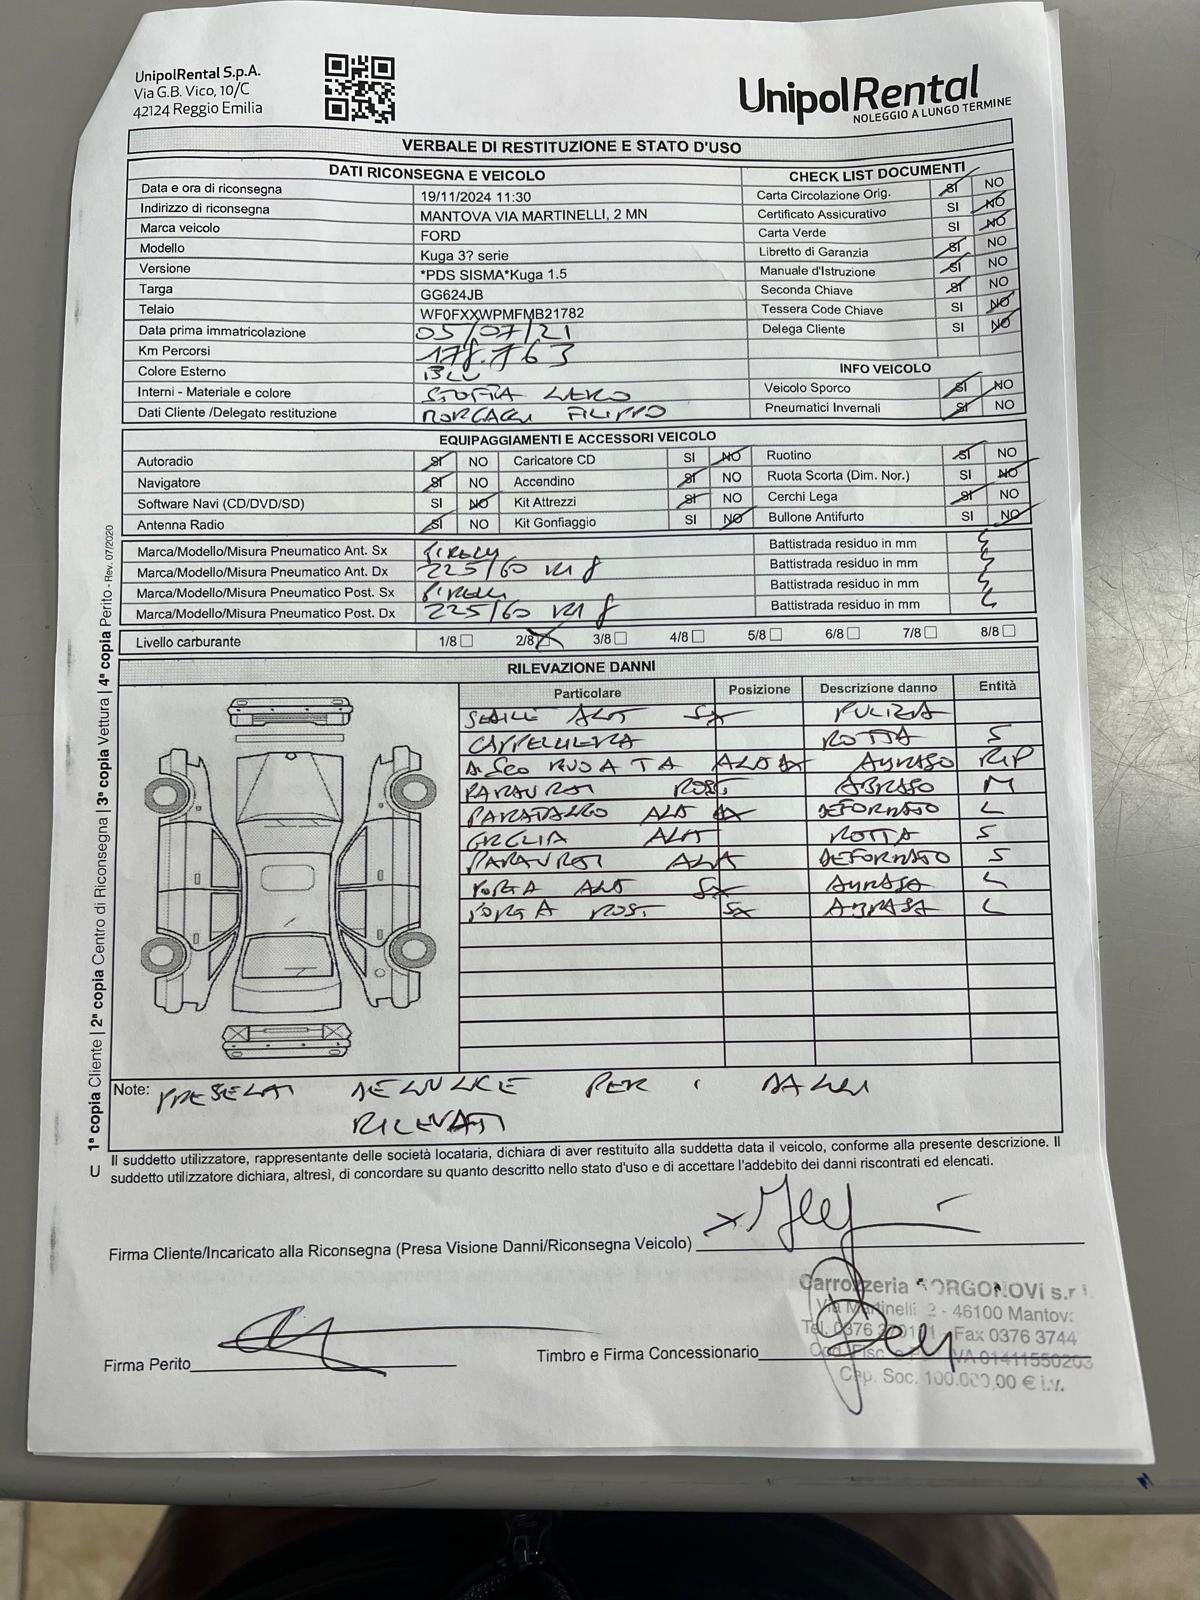 UnipolRental S.p.A.
Via G.B. Vico, 10/C
42124 Reggio Emilia
UnipolRental
NOLEGGIO A LUNGO TERMINE
VERBALE DI RESTITUZIONE E STATO D'USO
DATI RICONSEGNA E VEICOLO
Data e ora di riconsegna 19/11/2024 11:30
Indirizzo di riconsegna MANTOVA VIA MARTINELLI, 2 MN
Marca veicolo FORD
Modello Kuga 3? serie
Versione *PDS SISMA*Kuga 1.5
Targa GG624JB
Telaio WF0FXXWPMFMB21782
Data prima immatricolazione 05/07/21
Km Percorsi 178.763
Colore Esterno BLU
Interni - Materiale e colore STOFFA NERO
Dati Cliente /Delegato restituzione FILIPPO
CHECK LIST DOCUMENTI
Carta Circolazione Orig. SI NO
Certificato Assicurativo SI NO
Carta Verde SI NO
Libretto di Garanzia SI NO
Manuale d'Istruzione SI NO
Seconda Chiave SI NO
Tessera Code Chiave SI NO
Delega Cliente SI NO
INFO VEICOLO
Veicolo Sporco SI NO
Pneumatici Invernali SI NO
EQUIPAGGIAMENTI E ACCESSORI VEICOLO
Autoradio SI NO Caricatore CD SI NO Ruotino SI NO
Navigatore SI NO Accendino SI NO Ruota Scorta (Dim. Nor.) SI NO
Software Navi (CD/DVD/SD) SI NO Kit Attrezzi SI NO Cerchi Lega SI NO
Antenna Radio SI NO Kit Gonfiaggio SI NO Bullone Antifurto SI NO
Marca/Modello/Misura Pneumatico Ant. Sx PIRELLI Battistrada residuo in mm
Marca/Modello/Misura Pneumatico Ant. Dx 225/60 R18 Battistrada residuo in mm
Marca/Modello/Misura Pneumatico Post. Sx PIRELLI Battistrada residuo in mm
Marca/Modello/Misura Pneumatico Post. Dx 225/60 R18 Battistrada residuo in mm
Livello carburante 1/8 2/8 3/8 4/8 5/8 6/8 7/8 8/8
RILEVAZIONE DANNI
Particolare Posizione Descrizione danno Entità
SEDILE ANT SX PULIZIA
CAPPELLIERA ROTTA S
DISCO RUOTA TA ANT DX ABRASO RIP
PARAURTI POST. ABRASO M
PARAFANGO ANT DX DEFORMATO L
GRIGLIA ANT ROTTA S
PARAURTI ANT DEFORMATO S
PORTA ANT SX ABRASA L
PORTA POST. SX ABRASA L
Note: PRESENTI DENUNCE PER I DANNI
RILEVATI
Il suddetto utilizzatore, rappresentante delle società locataria, dichiara di aver restituito alla suddetta data il veicolo, conforme alla presente descrizione. Il
suddetto utilizzatore dichiara, altresì, di concordare su quanto descritto nello stato d'uso e di accettare l'addebito dei danni riscontrati ed elencati.
Firma Cliente/Incaricato alla Riconsegna (Presa Visione Danni/Riconsegna Veicolo)
Firma Perito
Timbro e Firma Concessionario
Carrozzeria BORGONOVI s.r.l.
Via Martinelli 2 - 46100 Mantova
Fax 0376 3744
IVA 01411550203
Cap. Soc. 100.000,00 € i.v.
1ª copia Cliente | 2ª copia Centro di Riconsegna | 3ª copia Vettura | 4ª copia Perito - Rev. 07/2020